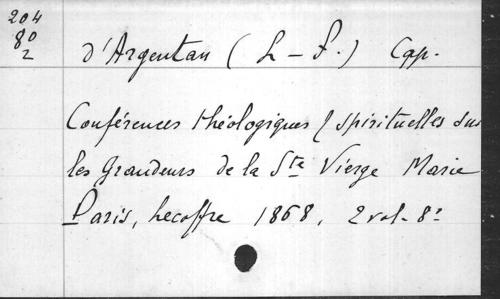 204
80
2
d'Argentan (L-F.) Cap.
Conférences théologiques & spirituelles sur
les Grandeurs de la Ste Vierge Marie
Paris, Lecoffre 1868, 2 vol. 8º